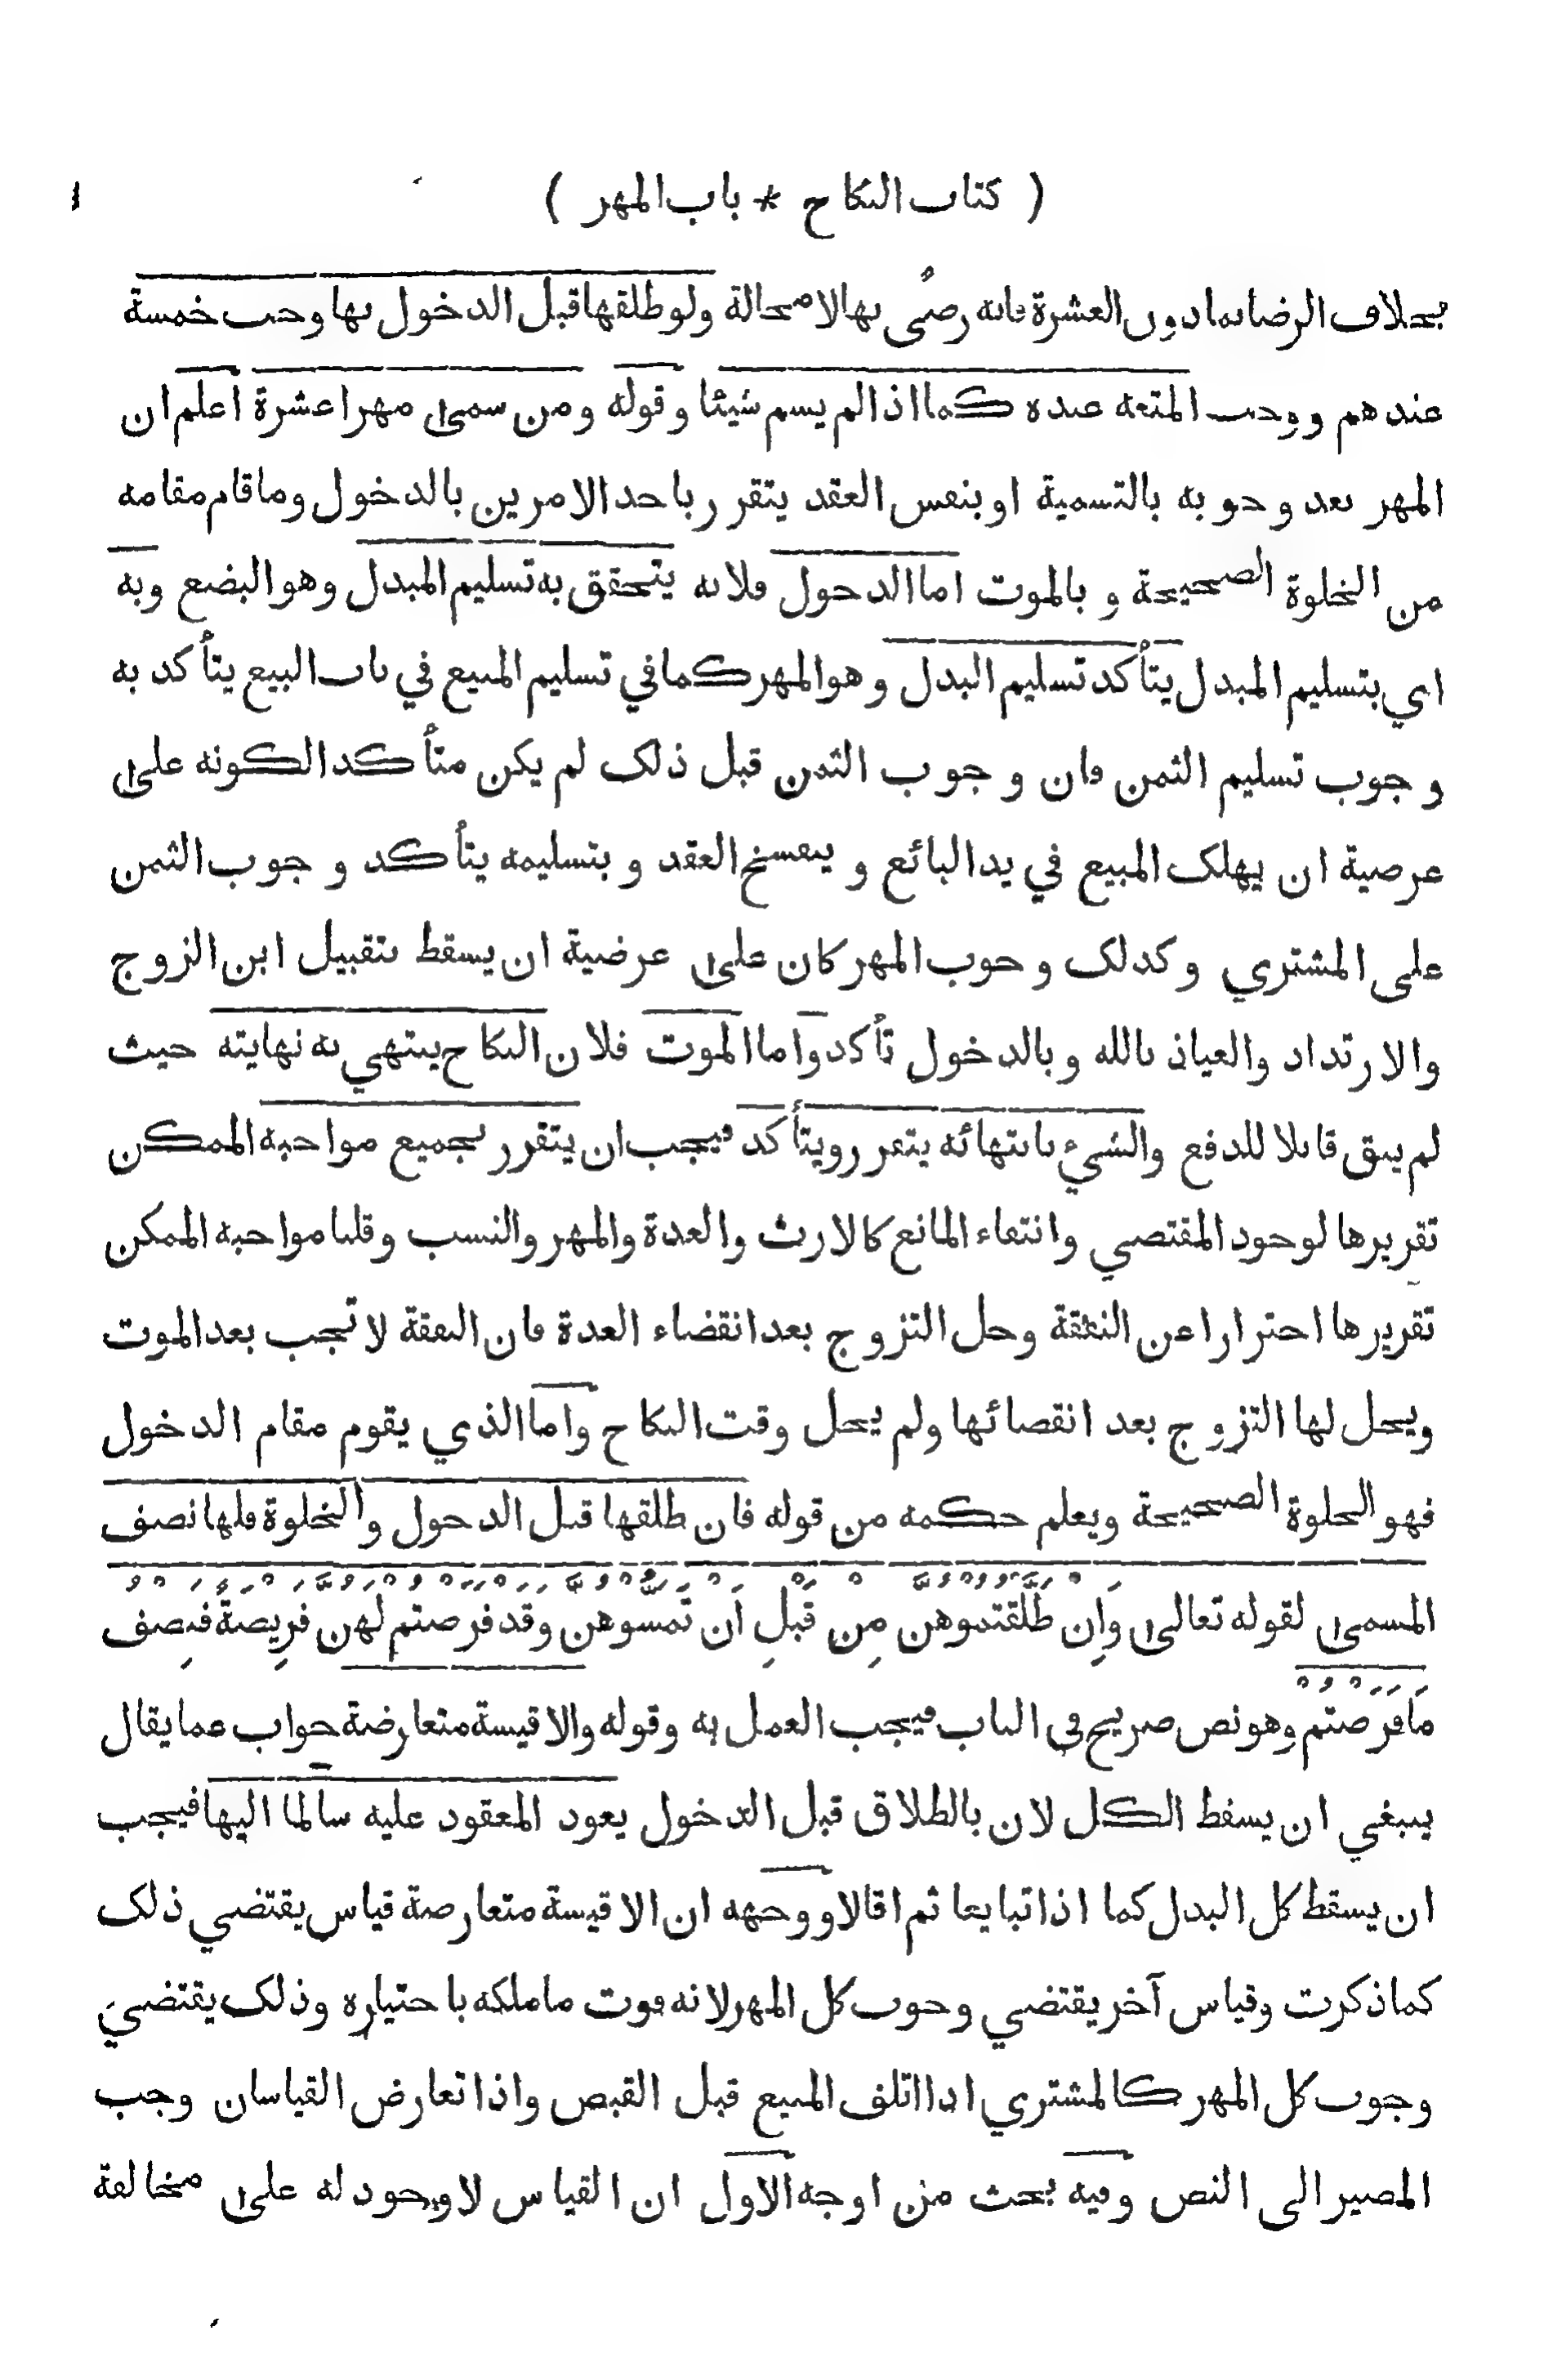 ( كتاب النكاح * باب المهر )
بخلاف الرضا بما دون العشرة فانه رضي بها لا محالة ولو طلقها قبل الدخول بها وجب خمسة
عندهم ووجب المتعه عنده كما اذا لم يسم شيئا وقوله ومن سمى مهرا عشرة اعلم ان
المهر بعد وجوبه بالتسمية او بنفس العقد يتقرر باحد الامرين بالدخول وما قام مقامه
من الخلوة الصحيحة و بالموت اما الدخول فلانه يتحقق به تسليم المبدل وهو البضع وبه
اي بتسليم المبدل يتأكد تسليم البدل وهو المهر كما في تسليم المبيع في باب البيع يتأكد به
وجوب تسليم الثمن فان وجوب الثمن قبل ذلك لم يكن متأكدا لكونه على
عرضية ان يهلك المبيع في يد البائع و ينفسخ العقد و بتسليمه يتأكد وجوب الثمن
على المشتري وكذلك وجوب المهر كان على عرضية ان يسقط بتقبيل ابن الزوج
والارتداد والعياذ بالله وبالدخول تأكد واما الموت فلان النكاح ينتهي به نهايته حيث
لم يبق قابلا للدفع والشيء بانتهائه يتقرر ويتأكد فيجب ان يتقرر بجميع مواجبه الممكن
تقريرها لوجود المقتضي وانتفاء المانع كالارث والعدة والمهر والنسب وقلنا مواجبه الممكن
تقريرها احترازا عن النفقة وحل التزوج بعد انقضاء العدة فان النفقة لا تجب بعد الموت
ويحل لها التزوج بعد انقضائها ولم يحل وقت النكاح واما الذي يقوم مقام الدخول
فهو الخلوة الصحيحة ويعلم حكمه من قوله فان طلقها قبل الدخول والخلوة فلها نصف
المسمى لقوله تعالى وَإِن طَلَّقْتُمُوهُنَّ مِن قَبْلِ أَنْ تَمَسُّوهُنَّ وَقَدْ فَرَضْتُمْ لَهُنَّ فَرِيضَةً فَنِصْفُ
مَا فَرَضْتُمْ وهو نص صريح في الباب فيجب العمل به وقوله والاقيسة متعارضة جواب عما يقال
ينبغي ان يسقط الكل لان بالطلاق قبل الدخول يعود المعقود عليه سالما اليها فيجب
ان يسقط كل البدل كما اذا تبايعا ثم اقالا ووجهه ان الاقيسة متعارضة قياس يقتضي ذلك
كما ذكرت وقياس آخر يقتضي وجوب كل المهر لانه فوت ما ملكه باختياره وذلك يقتضي
وجوب كل المهر كالمشتري اذا اتلف المبيع قبل القبض واذا تعارض القياسان وجب
المصير الى النص وفيه بحث من اوجه الاول ان القياس لا وجود له على مخالفة